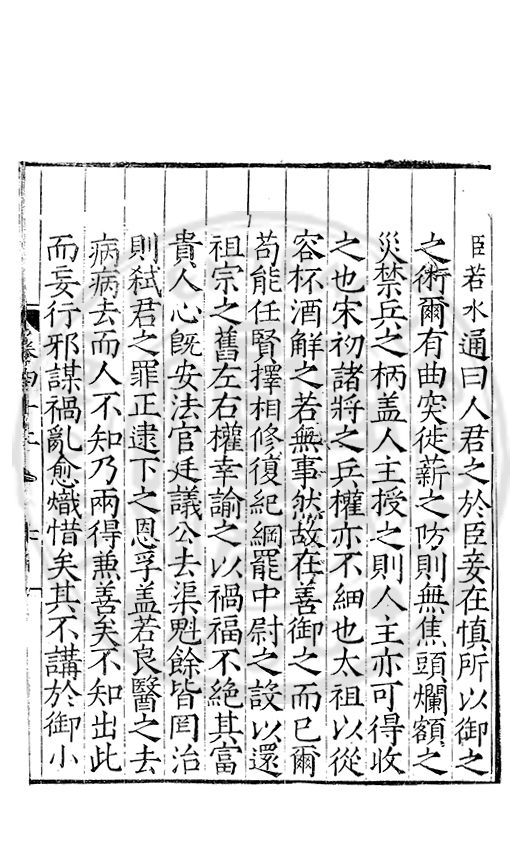 臣若水通曰人君之於臣妾在慎所以御之
之術爾有曲突徙薪之防則無焦頭爛額之
災禁兵之柄盖人主授之則人主亦可得收
之也宋初諸將之兵權亦不細也太祖以從
容杯酒解之若無事然故在善御之而已爾
苟能任賢擇相修復紀綱罷中尉之設以還
祖宗之舊左右權幸諭之以禍福不絶其富
貴人心旣安法官廷議公去渠魁餘皆罔治
則弑君之罪正逮下之恩孚盖若良醫之去
病病去而人不知乃兩得兼善矣不知出此
而妄行邪謀禍亂愈熾惜矣其不講於御小